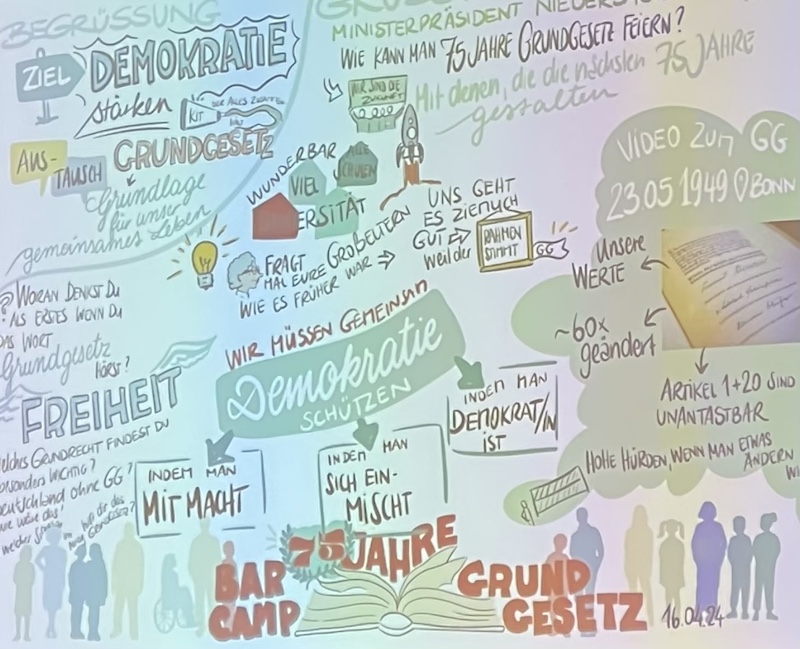 BEGRÜSSUNG
ZIEL
DEMOKRATIE
stärken
KIT
GRUNDGESETZ
AUS-
TAUSCH
Grundlage
für unser
gemeinsames Leben
MINISTERPRÄSIDENT
WIE KANN MAN 75 JAHRE GRUNDGESETZ FEIERN?
WIR SIND DIE
ZUKUNFT
Mit denen, die die nächsten 75 JAHRE
gestalten
WUNDERBAR
VIEL
ERSITÄT
ALLE
SCHULEN
FRAGT
MAL EURE GROẞELTERN
WIE ES FRÜHER WAR
UNS GEHT
ES ZIEMLICH
GUT
Weil der
RAHMEN
STIMMT
GG
VIDEO ZUM GG
23.05.1949 BONN
Unsere
WERTE
~60x
geändert
ARTIKEL 1+20 SIND
UNANTASTBAR
HOHE HÜRDEN, WENN MAN ETWAS
ÄNDERN
WORAN DENKST DU
ALS ERSTES WENN DU
DAS WORT
Grundgesetz
HÖRST?
FREIHEIT
WELCHES GRUNDRECHT FINDEST DU
BESONDERS WICHTIG?
Deutschland ohne GG?
WIR MÜSSEN GEMEINSAM
Demokratie
SCHÜTZEN
INDEM MAN
MITMACHT
INDEM MAN
SICH EIN-
MISCHT
INDEM MAN
DEMOKRAT/IN
IST
75 JAHRE
BAR
CAMP
GRUND
GESETZ
16.04.24